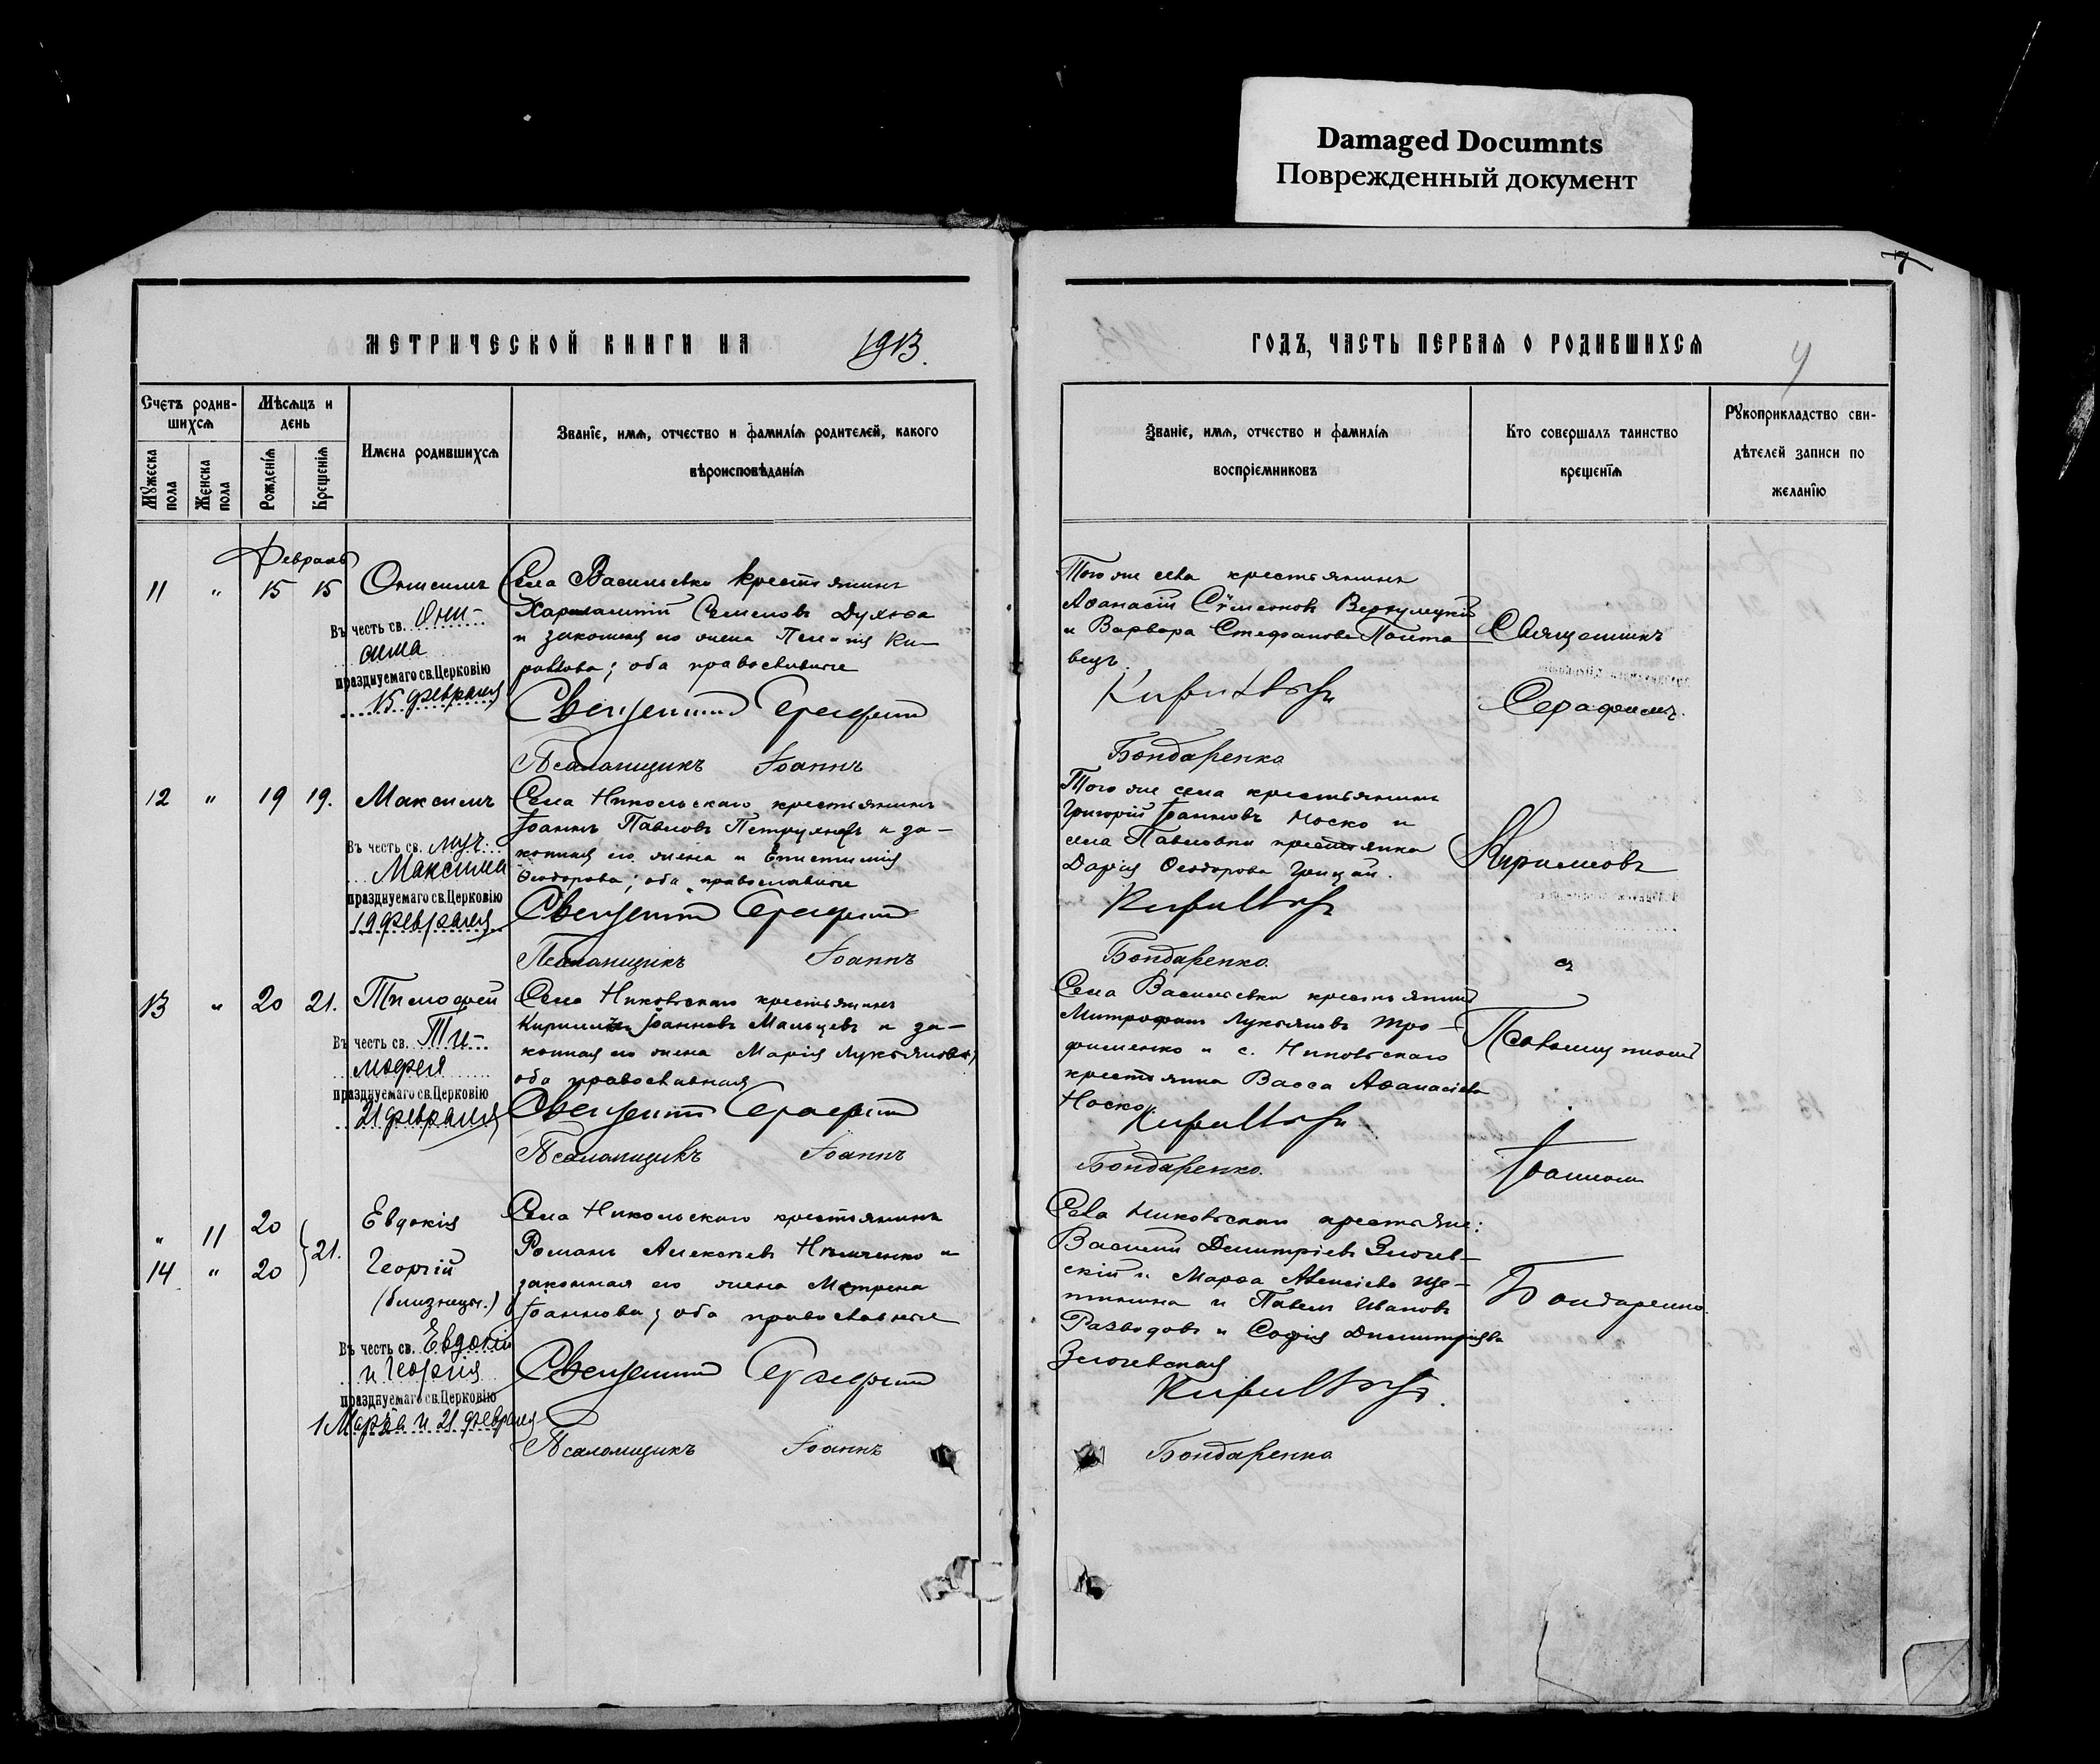 Damaged Documnts
Поврежденный документ
7
МЕТРИЧЕСКОЙ КНИГИ НА 1913.
ГОДЪ, ЧАСТЬ ПЕРВАЯ О РОДИВШИХСЯ
4
Счетъ родив-
шихся
Мѣсяцъ и
день
Мужеска пола
Женска пола
Рожденія
Крещенія
Имена родившихся
Званіе, имя, отчество и фамилія родителей, какого
вѣроисповѣданія
Званіе, имя, отчество и фамилія
воспріемниковъ
Кто совершалъ таинство
крещенія
Рукоприкладство сви-
дѣтелей записи по
желанію
Февраль
11 " 15 15 Онисимъ
Въ честь св. Они-
сима
празднуемаго св. Церковію
15 февраля
Села Васильевки крестьянинъ
Харлампій Семеновъ
и законная его жена Ки-
риллова; оба православные
Священникъ Серафимъ
Псаломщикъ Іоаннъ
Того же села крестьянинъ
Аѳанасій Сѵмеоновъ
и Варвара Стефанова Полта
вецъ.
Кирилловъ
Бондаренко
12 " 19 19. Максимъ
Въ честь св. муч.
Максима
празднуемаго св. Церковію
19 февраля
Села Никольскаго крестьянинъ
Іоаннъ Павловъ и за-
конная его жена Епистимія
Ѳеодорова; оба православные
Священникъ Серафимъ
Псаломщикъ Іоаннъ
Того же села крестьянинъ
Григорій Іоанновъ Носко и
села Павловки крестьянка
Дарія Ѳеодорова Грицай.
Кирилловъ
Бондаренко
13 " 20 21. Тимофей
Въ честь св. Ти-
мофея
празднуемаго св. Церковію
21 февраля
Села Никольскаго крестьянинъ
Кириллъ Іоанновъ Мальцевъ и за-
конная его жена Марія Лукьянова;
оба православная
Священникъ Серафимъ
Псаломщикъ Іоаннъ
Села Васильевки крестьянинъ
Митрофанъ Лукьяновъ Тро-
фименко и с. Никольскаго
крестьянка Васса Аѳанасіева
Носко.
Кирилловъ
Бондаренко.
" 11 20 Евдокія
21.
14 " 20 Георгій
(близнецы.)
Въ честь св. Евдокіи
и Георгія
празднуемаго св. Церковію
1 Марта и 21 февраля
Села Никольскаго крестьянинъ
Романъ Алексѣевъ Нѣмченко и
законная его жена Матрена
Іоаннова; оба православные
Священникъ Серафимъ
Псаломщикъ Іоаннъ
Села Никольскаго крестьяне:
Василій Димитріевъ Злочев-
скій и Марѳа Алексіева Ще-
тинина и Павелъ Ивановъ
Разводовъ и Софія Димитріева
Злочевская
Кирилловъ.
Бондаренко
Священникъ
Серафимъ
Кирилловъ
съ
Псаломщикомъ
Іоанномъ
Бондаренко.